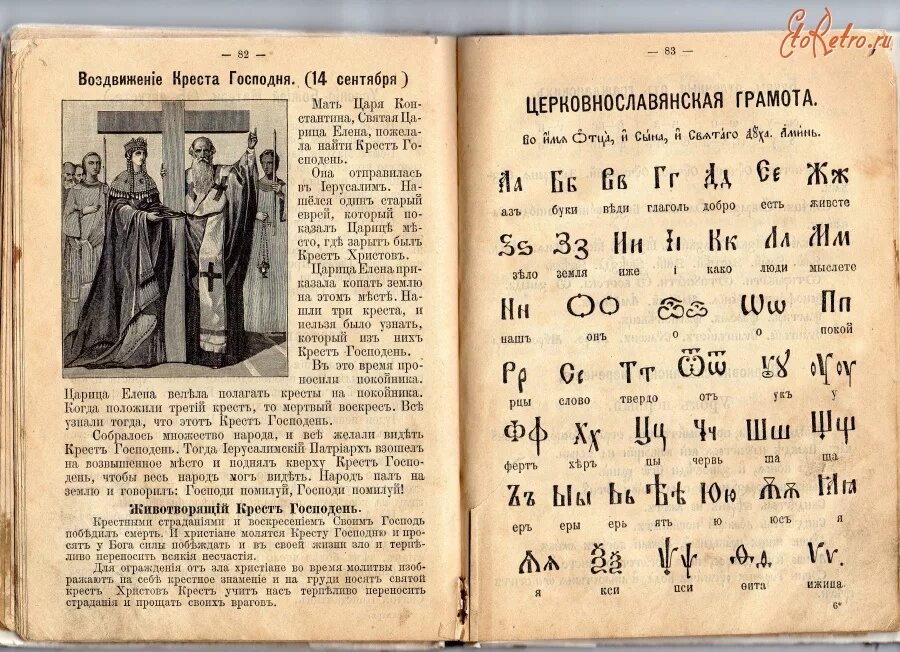 EtoRetro.ru
— 82 —
Воздвиженіе Креста Господня. (14 сентября)
Мать Царя Кон-
стантина, Святая Ца-
рица Елена, пожела-
ла найти Крестъ Го-
сподень.
Она отправилась
въ Іерусалимъ. На-
шёлся одинъ старый
еврей, который по-
казалъ Царицѣ мѣ-
сто, гдѣ зарытъ былъ
Крестъ Христовъ.
Царица Елена при-
казала копать землю
на этомъ мѣстѣ. На-
шли три креста, и
нельзя было узнать,
который изъ нихъ
Крестъ Господень.
Въ это время про-
носили покойника.
Царица Елена велѣла полагать кресты на покойника.
Когда положили третій крестъ, то мертвый воскресъ. Всѣ
узнали тогда, что этотъ Крестъ Господень.
Собралось множество народа, и всѣ желали видѣть
Крестъ Господень. Тогда Іерусалимскій Патріархъ взошелъ
на возвышенное мѣсто и поднялъ кверху Крестъ Госпо-
день, чтобы весь народъ могъ видѣть. Народъ палъ на
землю и говорилъ: Господи помилуй, Господи помилуй!
Животворящій Крестъ Господень.
Крестными страданіями и воскресеніемъ Своимъ Господь
побѣдилъ смерть. И христіане молятся Кресту Господню и про-
сятъ у Бога силы побѣждать и въ своей жизни зло и терпѣ-
ливо переносить всякія несчастія.
Для огражденія отъ зла христіане во время молитвы изоб-
ражаютъ на себѣ крестное знаменіе и на груди носятъ святой
крестъ Христовъ Крестъ учитъ насъ терпѣливо переносить
страданія и прощать своихъ враговъ.
— 83 —
ЦЕРКОВНОСЛАВЯНСКАЯ ГРАМОТА.
Во и҆́мѧ Ѻ҆тца̀, и҆ Сы́на, и҆ Свѧта́гѡ Дꙋ́ха. А҆ми́нь.
Аа Бб Вв Гг Дд Єе Жж
азъ буки вѣди глаголь добро есть живете
Ѕѕ Зз Ии Іі Кк Лл Мм
зѣло земля иже і како люди мыслете
Нн Ѻѻ Ѽѽ Ѡѡ Пп
нашъ онъ о о покой
Рр Сс Тт Ѿѿ Ꙋꙋ Оуоу
рцы слово твердо отъ укъ у
Фф Хх Цц Чч Шш Щщ
фертъ хѣръ цы червь ша ща
Ъъ Ыы Ьь Ѣѣ Юю Ѫѫ Ꙗꙗ
еръ еры ерь ять ю юсъ я
Ѧѧ Ѯѯ Ѱѱ Ѳѳ Ѵѵ.
я кси пси ѳита ижица
6*